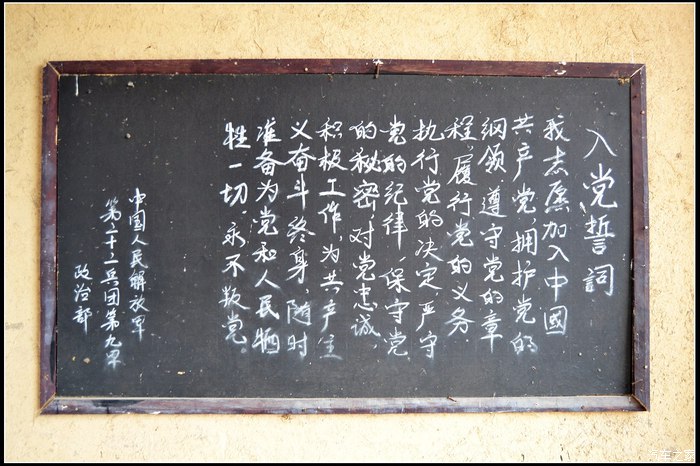 入党誓詞
我志愿加入中國
共产党，拥护党的
纲领，遵守党的章
程，履行党的义务，
执行党的决定，严守
党的纪律，保守党
的秘密，对党忠诚，
积极工作，为共产主
义奋斗终身，随时
准备为党和人民牺
牲一切，永不叛党。
中国人民解放军
第二十二兵团第九军
政治部